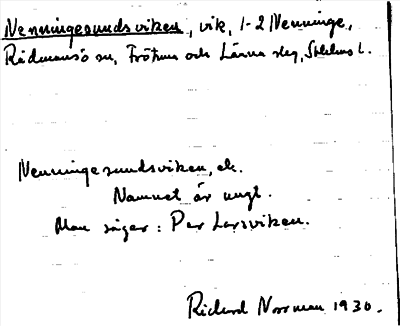 Nenningesundsviken, vik, 1-2 Nenninge,
Rådmansö sn, Frötuna och Länna slg, Sthlms l.
Nenningesundsviken, ek.
Namnet är ungt.
Man säger: Per Larsviken.
Richard Norrman 1930.